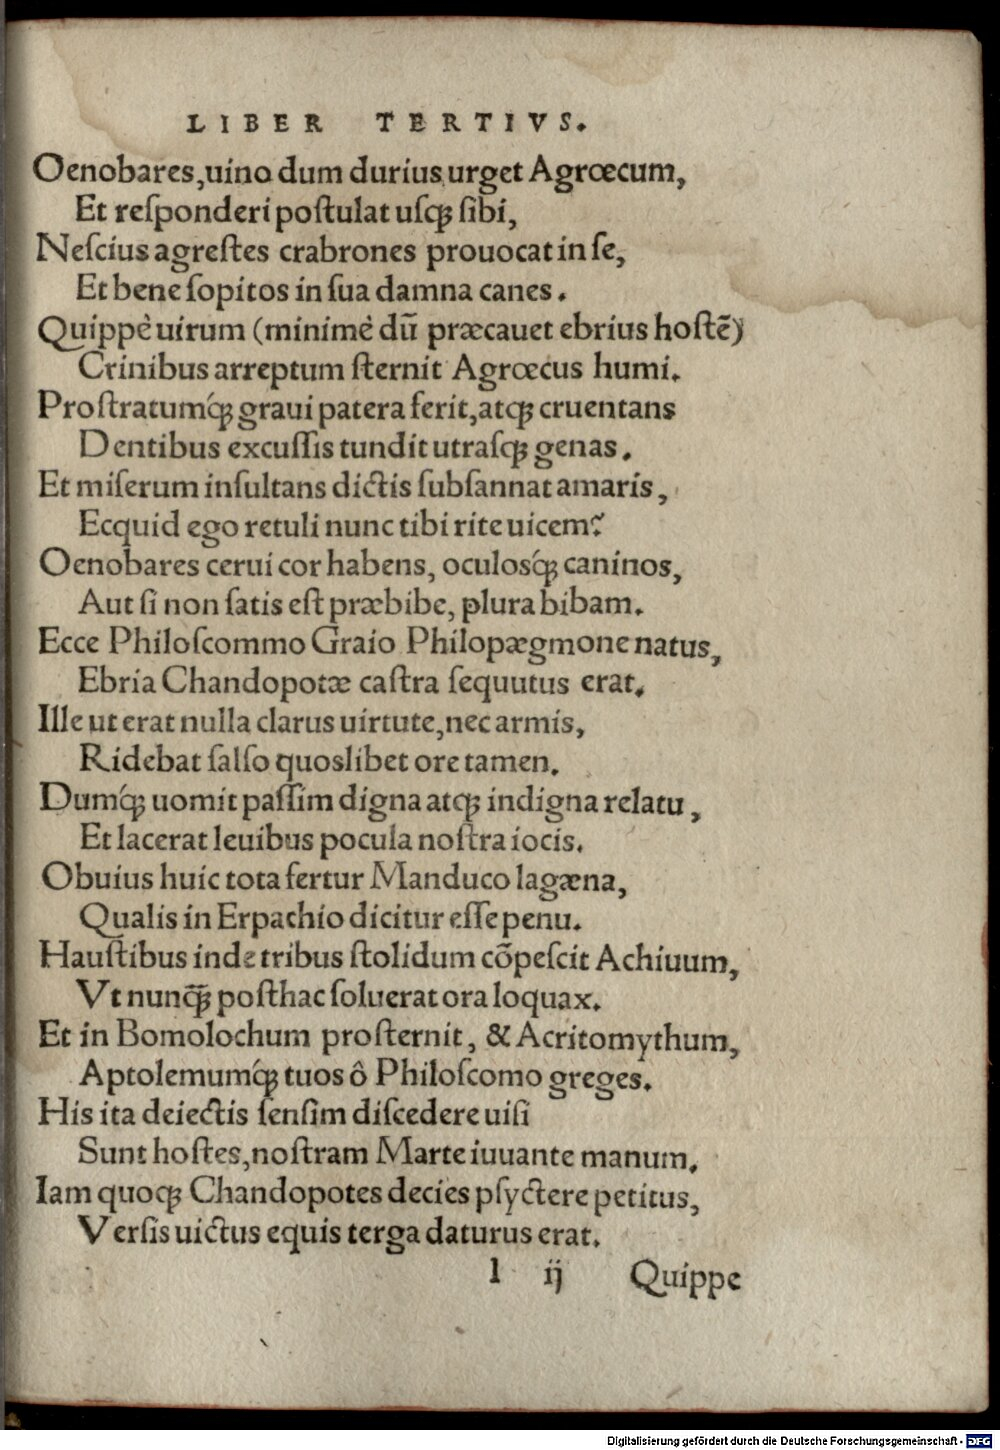 LIBER TERTIVS.
Oenobares,uino dum durius urget Agrœcum,
Et reſponderi poſtulat uſqꝫ ſibi,
Neſcius agreſtes crabrones prouocat in ſe,
Et bene ſopitos in ſua damna canes.
Quippè uirum (minimè dū præcauet ebrius hoſtē)
Crinibus arreptum ſternit Agrœcus humi.
Proſtratumq́ꝫ graui patera ferit,atqꝫ cruentans
Dentibus excuſſis tundit utraſqꝫ genas.
Et miſerum inſultans dictis ſubſannat amaris,
Ecquid ego retuli nunc tibi rite uicem?
Oenobares cerui cor habens, oculosq́ꝫ caninos,
Aut ſi non ſatis eſt præbibe, plura bibam.
Ecce Philoſcommo Graio Philopægmone natus,
Ebria Chandopotæ caſtra ſequutus erat.
Ille ut erat nulla clarus uirtute,nec armis,
Ridebat ſalſo quoslibet ore tamen.
Dumq́ꝫ uomit paſſim digna atqꝫ indigna relatu,
Et lacerat leuibus pocula noſtra iocis.
Obuius huic tota fertur Manduco lagæna,
Qualis in Erpachio dicitur eſſe penu.
Hauſtibus inde tribus ſtolidum cōpeſcit Achiuum,
Vt nunq̄ꝫ poſthac ſoluerat ora loquax.
Et in Bomolochum proſternit, & Acritomythum,
Aptolemumq́ꝫ tuos ô Philoſcomo greges.
His ita deiectis ſenſim diſcedere uiſi
Sunt hoſtes,noſtram Marte iuuante manum.
Iam quoqꝫ Chandopotes decies pſyctere petitus,
Verſis uictus equis terga daturus erat.
l ij Quippe
Digitalisierung gefördert durch die Deutsche Forschungsgemeinschaft - DFG